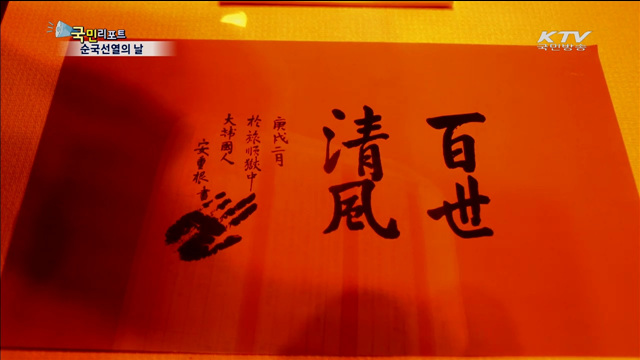 국민리포트
순국선열의 날
KTV
국민방송
百世
清風
庚戌二月
於旅順獄中
大韓國人
安重根書